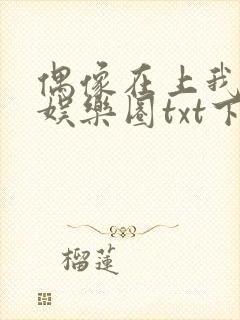 偶像在上我
娱樂圈txt下
榴蓮